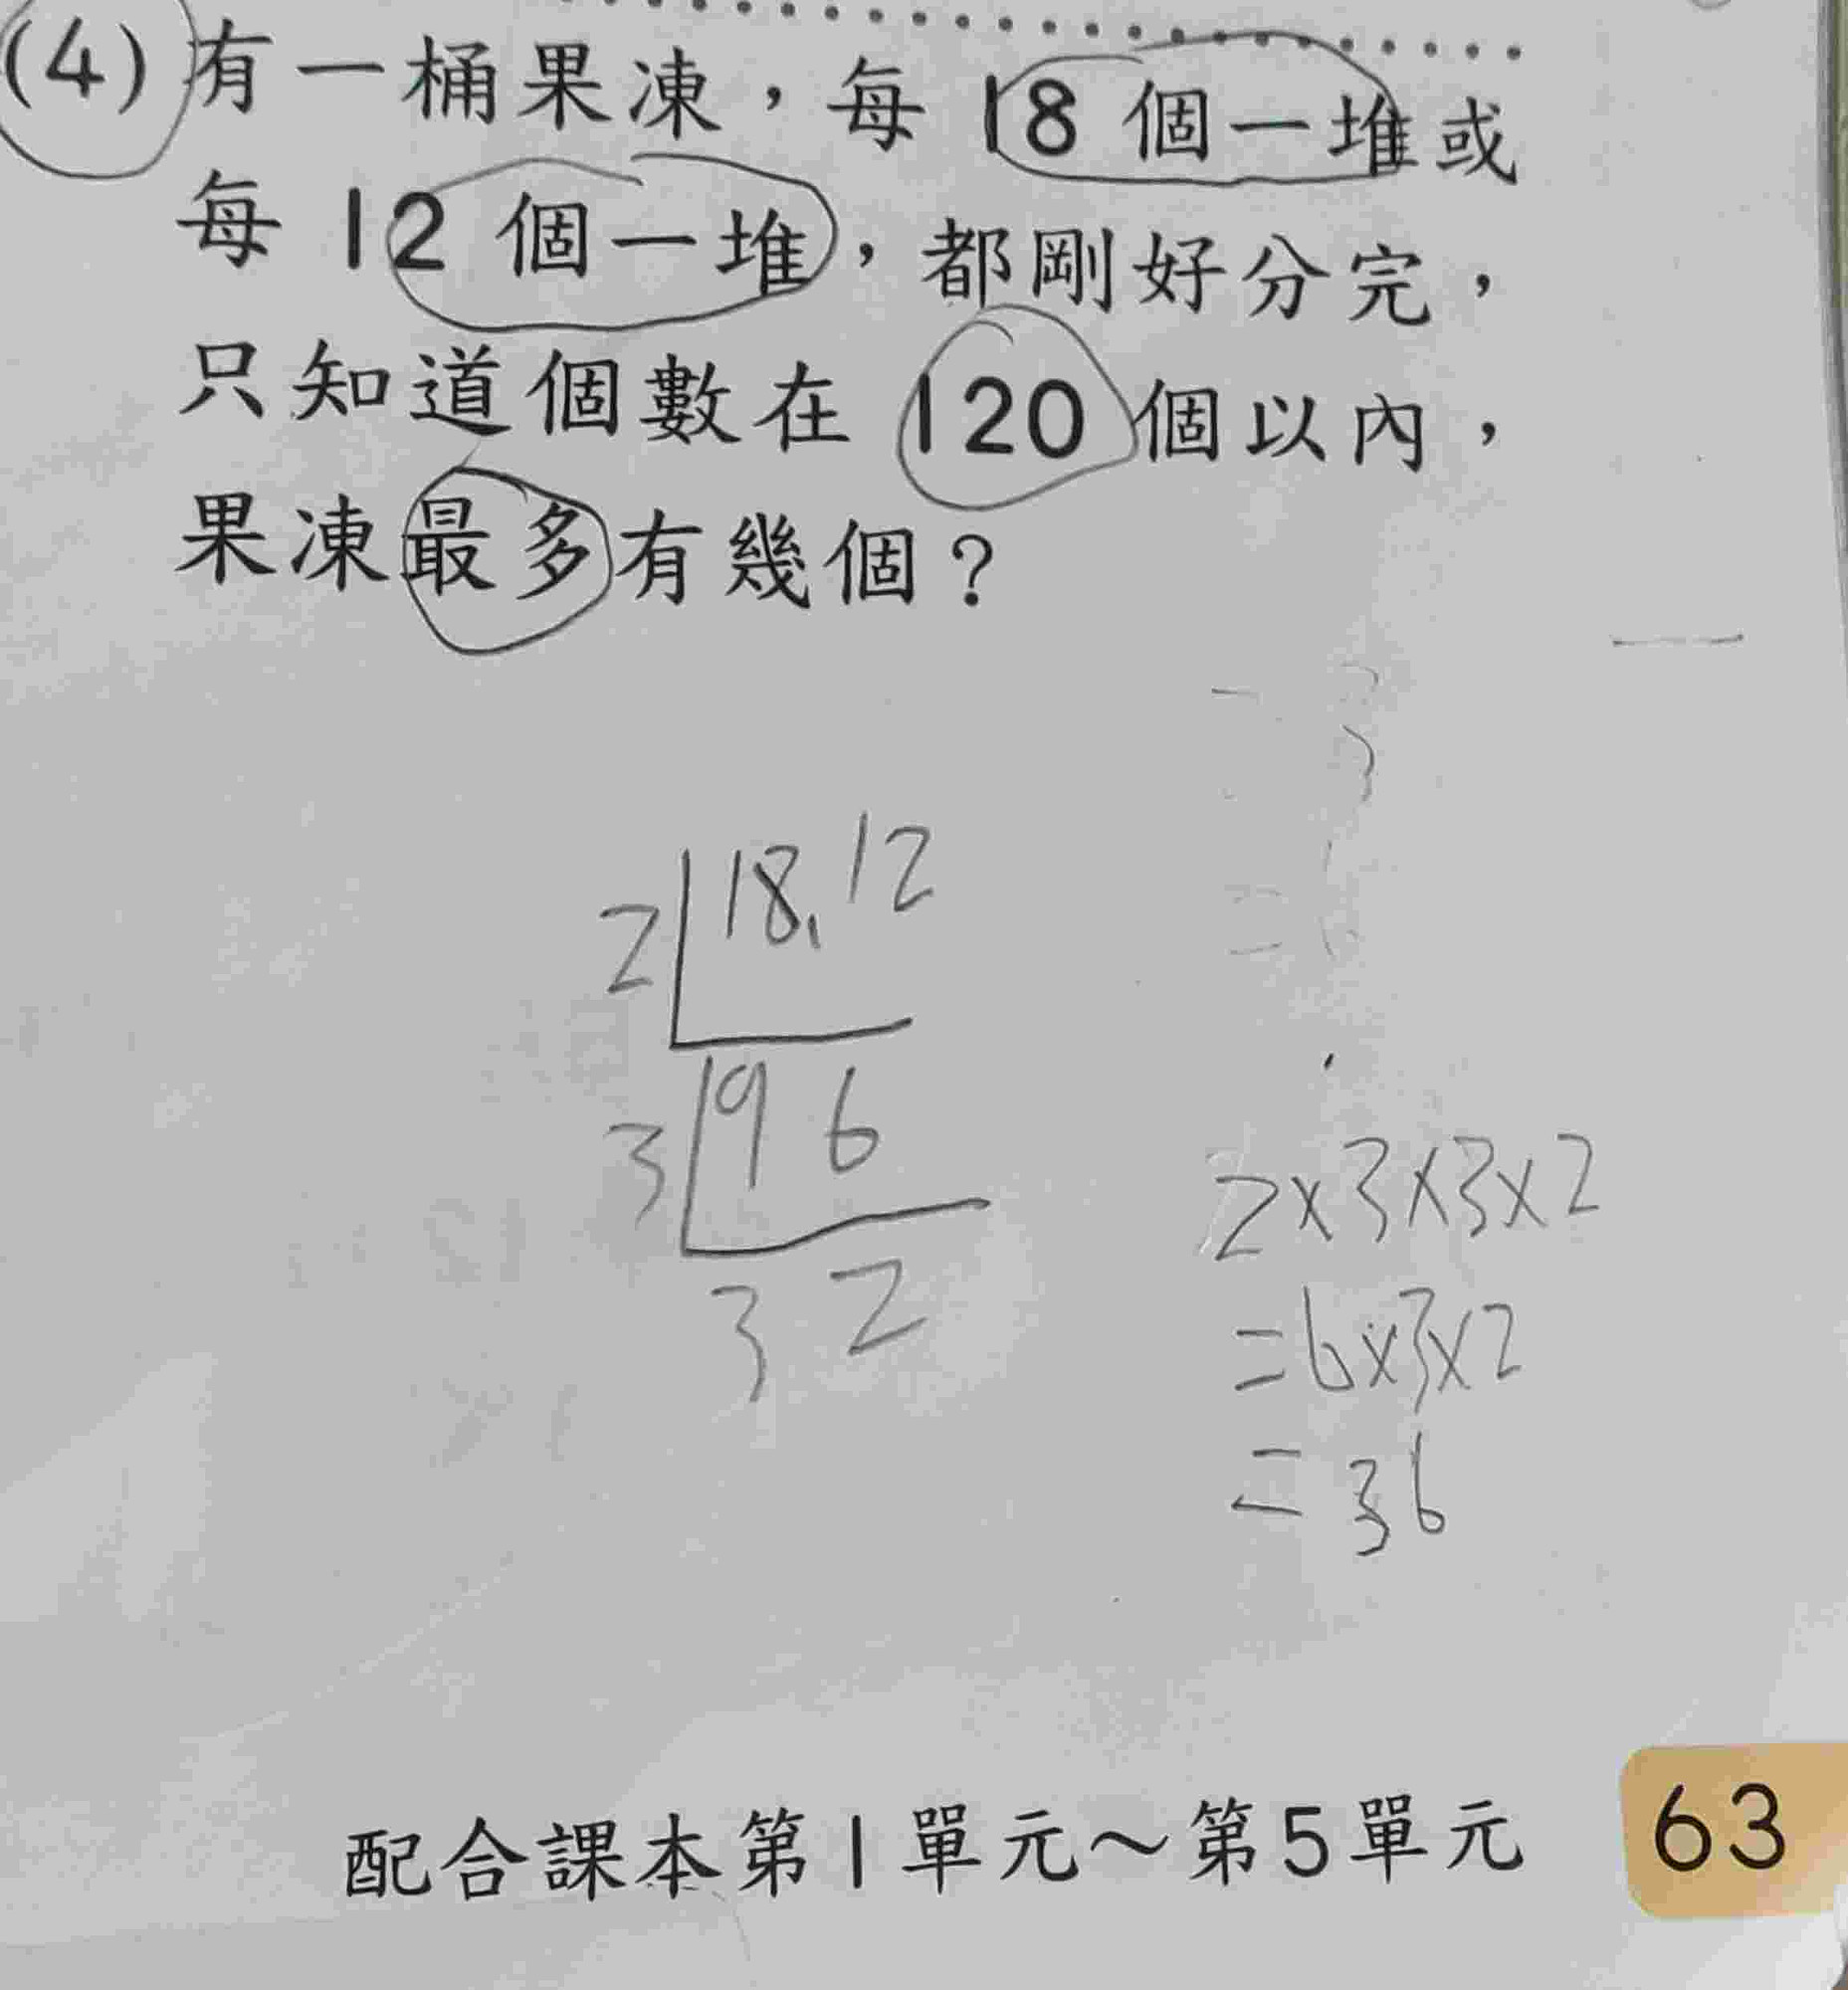 (4)有一桶果凍，每18個一堆或
每12個一堆，都剛好分完，
只知道個數在120個以內，
果凍最多有幾個？
2 18,12
3 9 6
3 2
2×3×3×2
=6×3×2
=36
配合課本第1單元～第5單元 63